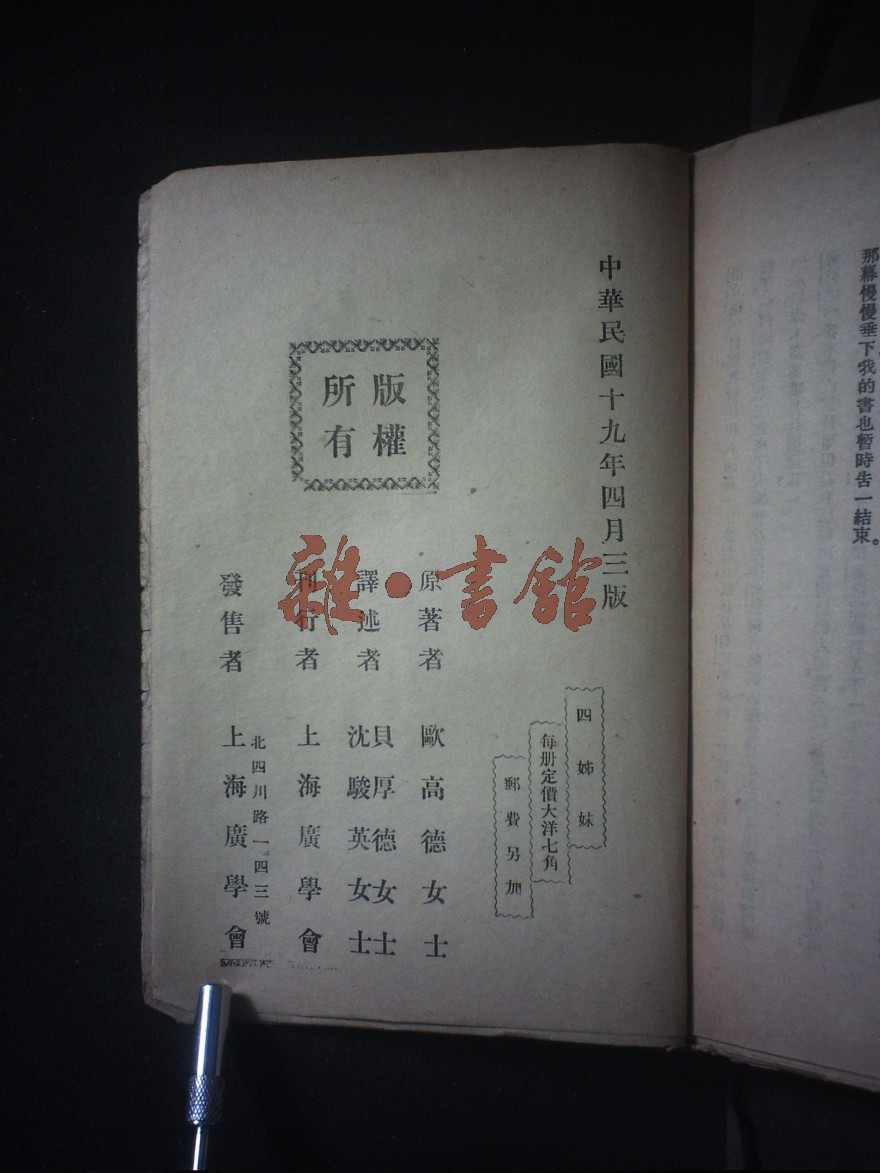 那幕慢慢垂下我的書也暫時告一結束。
中華民國十九年四月三版
四姊妹
每册定價大洋七角
郵費另加
版權
所有
原著者 歐高德女士
譯述者 貝厚德女士
沈駿英女士
刊行者 上海廣學會
北四川路一四三號
發售者 上海廣學會
雜·書館